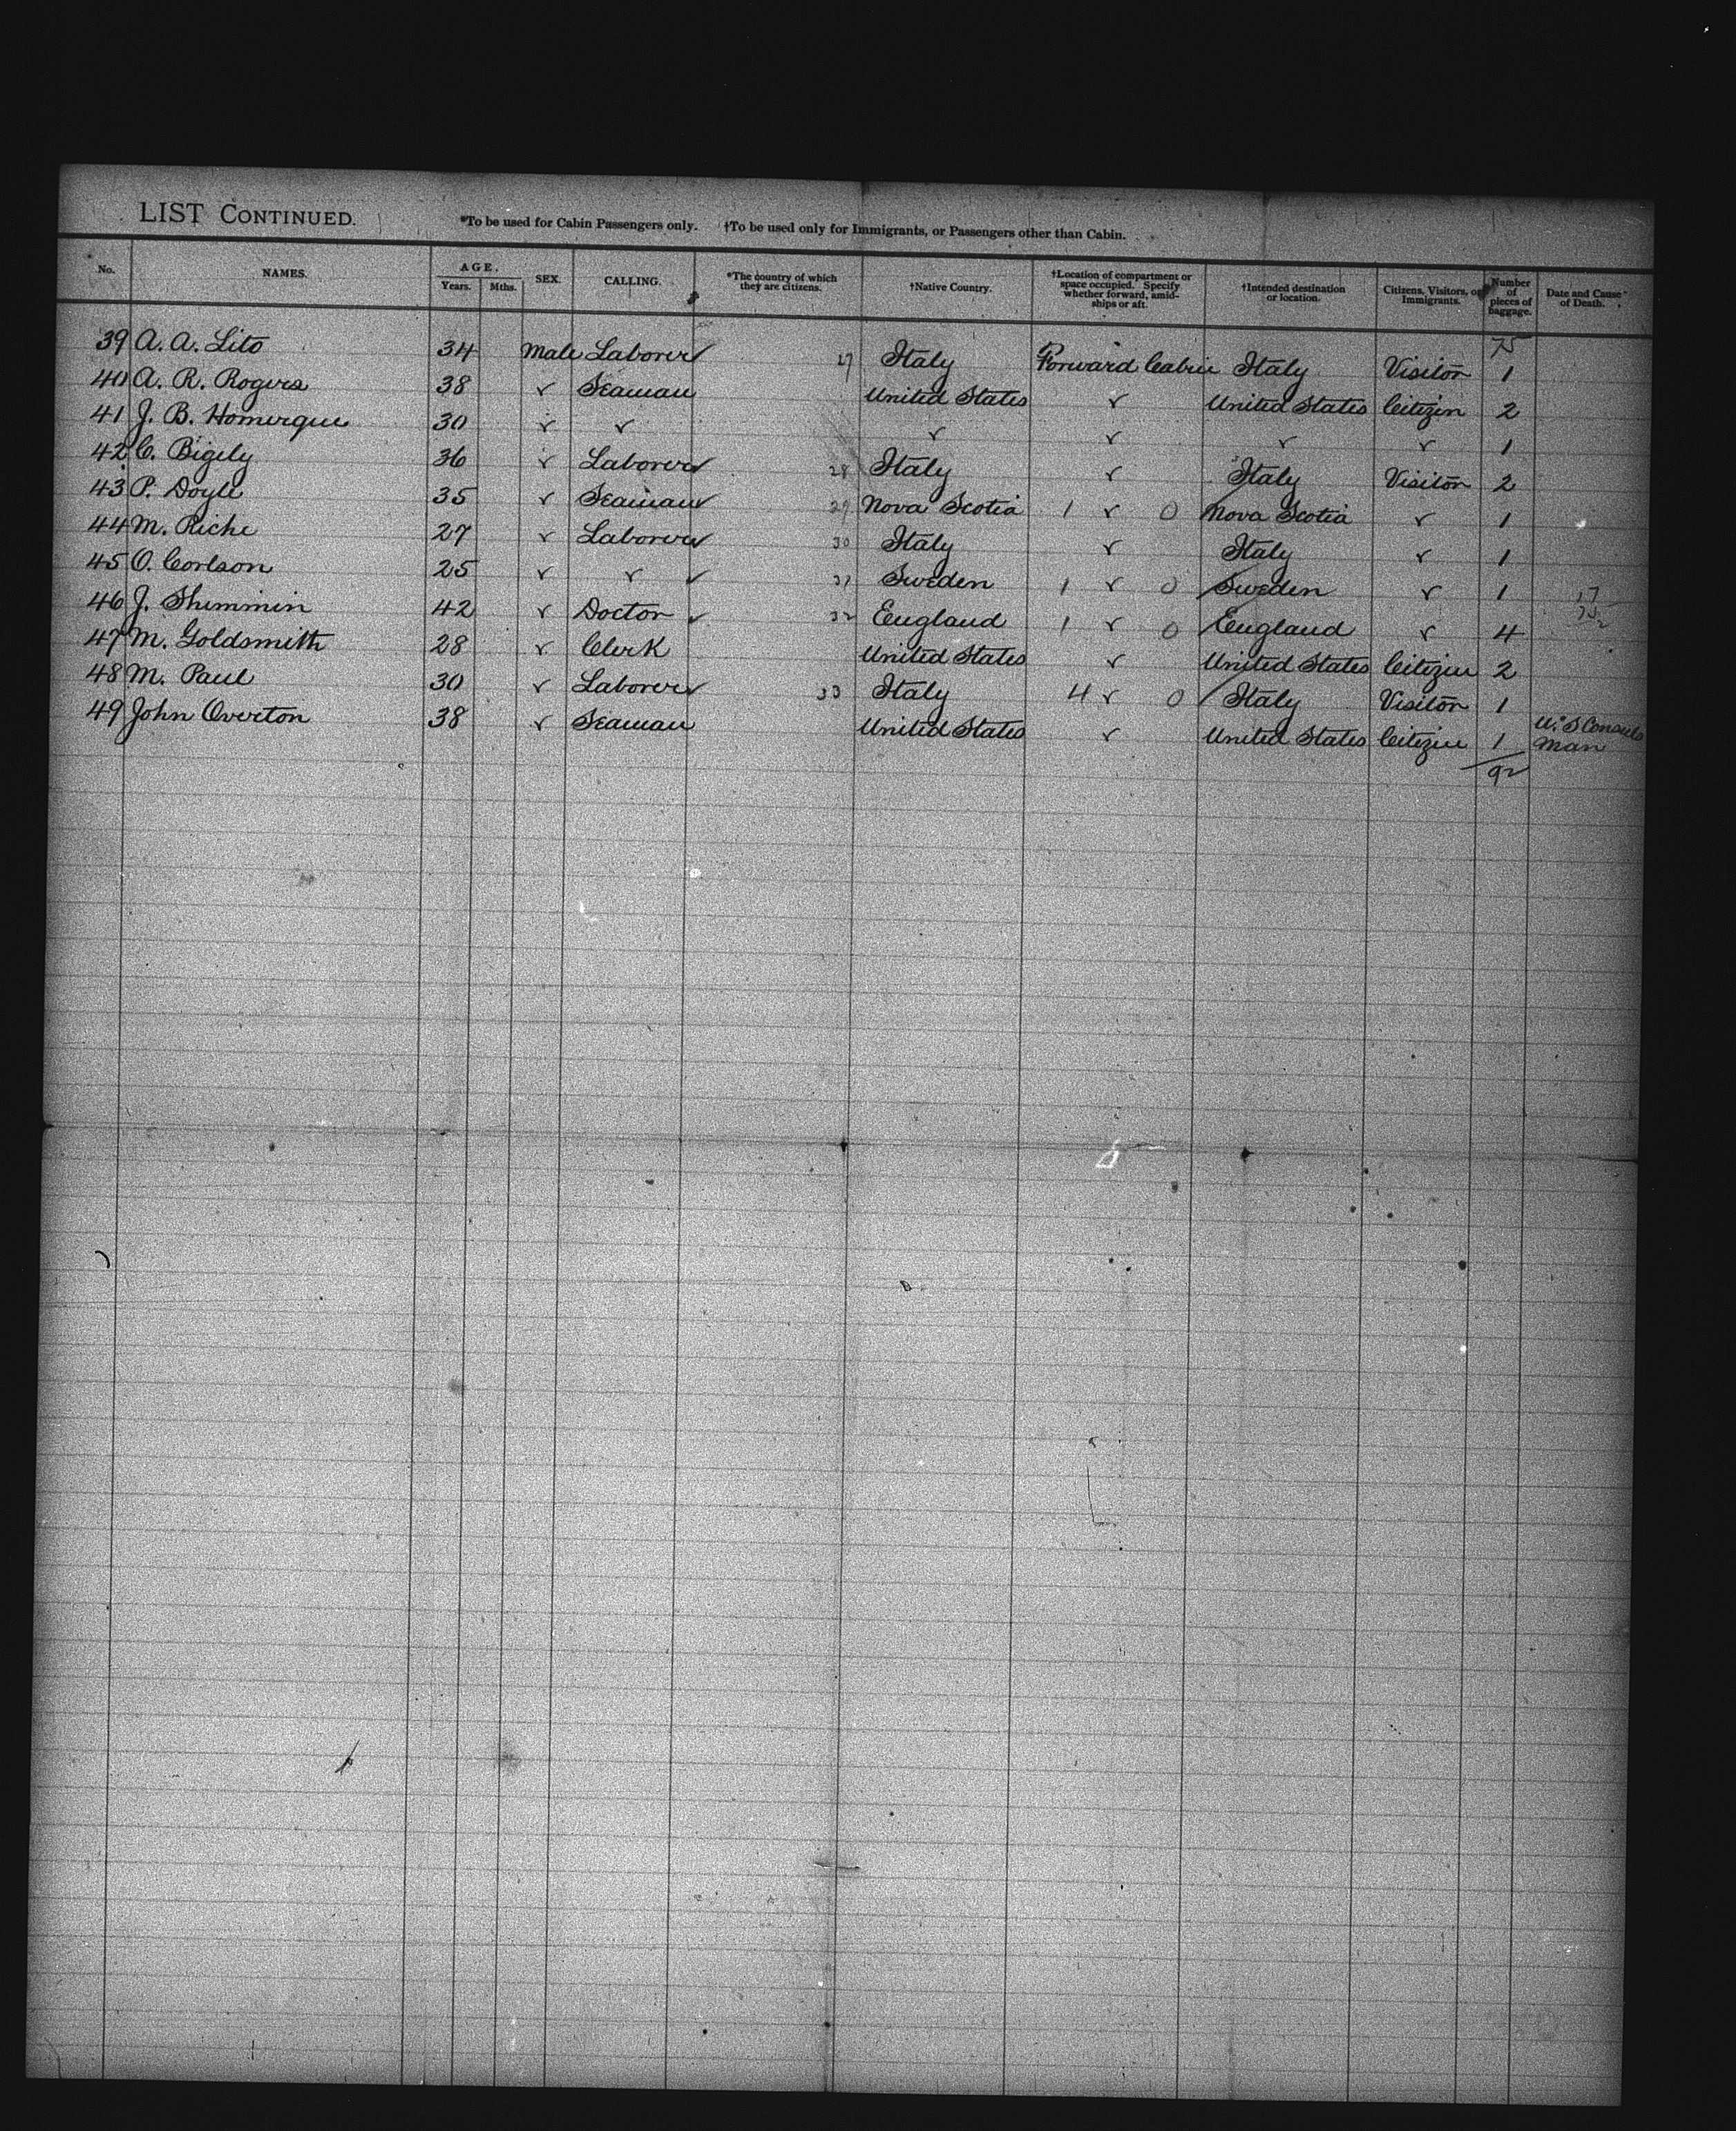 LIST CONTINUED. *To be used for Cabin Passengers only. †To be used only for Immigrants, or Passengers other than Cabin.
No. NAMES. AGE. Years. Mths. SEX. CALLING. *The country of which they are citizens. †Native Country. †Location of compartment or space occupied. Specify whether forward, amidships or aft. †Intended destination or location. Citizens, Visitors, or Immigrants. Number of pieces of baggage. Date and Cause of Death.
75
39 A. A. Lito 34 Male Laborer ✓ 27 Italy Forward Cabin Italy Visitor 1
40 A. R. Rogers 38 ✓ Seaman United States ✓ United States Citizen 2
41 J. B. Homergue 30 ✓ ✓ ✓ ✓ ✓ ✓ 1
42 C. Bigely 36 ✓ Laborer ✓ 28 Italy ✓ Italy Visitor 2
43 P. Doyle 35 ✓ Seaman ✓ 29 Nova Scotia 1 ✓ 0 Nova Scotia ✓ 1
44 M. Riche 27 ✓ Laborer ✓ 30 Italy ✓ Italy ✓ 1
45 O. Corlson 25 ✓ ✓ ✓ 31 Sweden 1 ✓ 0 Sweden ✓ 1
46 J. Shimmin 42 ✓ Doctor ✓ 32 England 1 ✓ 0 England ✓ 4
47 M. Goldsmith 28 ✓ Clerk United States ✓ United States Citizen 2
48 M. Paul 30 ✓ Laborer ✓ 33 Italy 4 ✓ 0 Italy Visitor 1
49 John Overton 38 ✓ Seaman United States ✓ United States Citizen 1 U.S Consuls Man
92